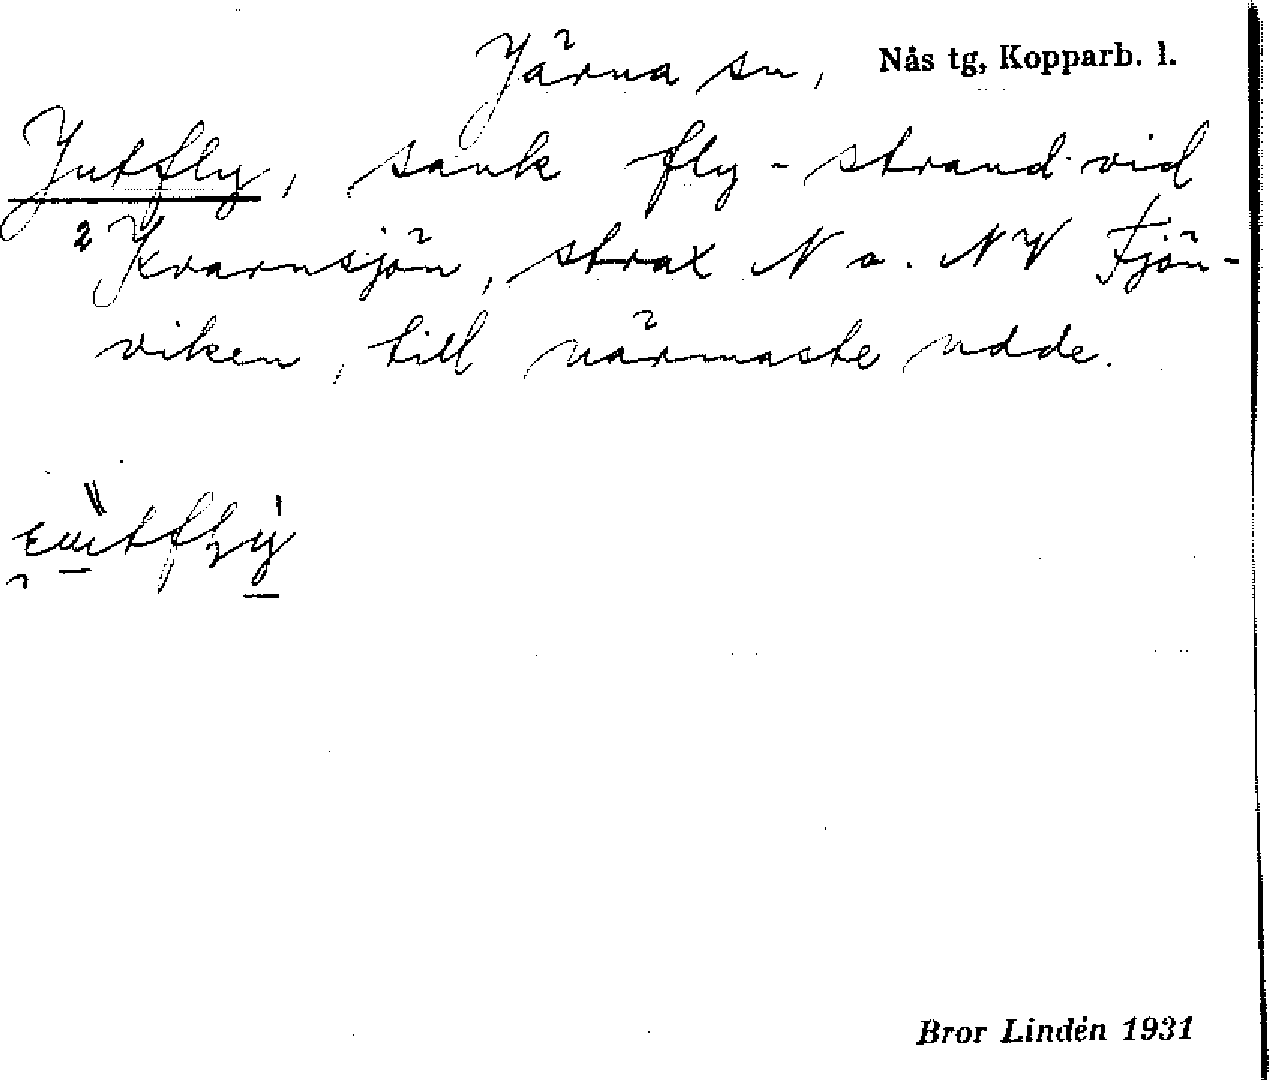 Järna sn, Nås tg, Kopparb. l.
Jutfly, sank fly-strand vid
2 Kvarnsjön, strax N o. NV Fjön-
viken, till närmaste udde.
Bror Lindén 1931